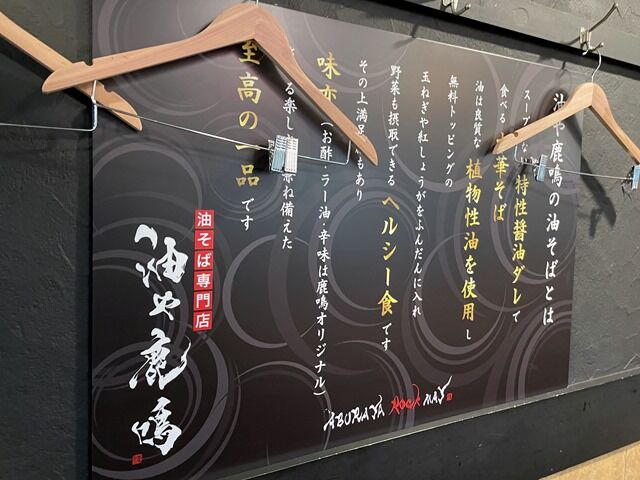 油や鹿鳴の油そばとは
スープ ない特性醤油ダレで
食べる 華そば
油は良質な植物性油を使用し
無料トッピングの
玉ねぎや紅しょうがをふんだんに入れ
野菜も摂取できるヘルシー食です
その上満足 もあり
味変(お酢・ラー油・辛味は鹿鳴オリジナル)
る楽し 兼ね備えた
至高の一品です
油そば専門店
油や鹿鳴
ABURAYA ROCK MAY